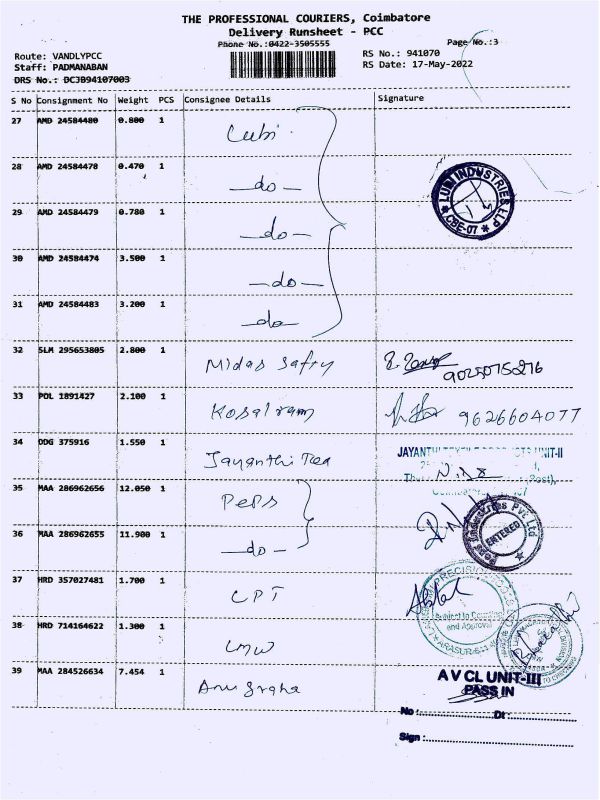 THE PROFESSIONAL COURIERS, Coimbatore
Delivery Runsheet - PCC
Phone No.:0422-3505555
Page No.:3
Route: VANDLYPCC
RS No.: 941070
Staff: PADMANABAN
RS Date: 17-May-2022
DRS No.: DCJB94107003
S No Consignment No Weight PCS Consignee Details Signature
27 AMD 24584480 0.800 1 Lubi
28 AMD 24584478 0.470 1 —do—
LUBI INDUSTRIES LLP
* CBE-07 *
29 AMD 24584479 0.780 1 —do—
30 AMD 24584474 3.500 1 —do—
31 AMD 24584483 3.200 1 do
32 SLM 295653805 2.800 1 Midas Safty
33 POL 1891427 2.100 1 Kosalram 9626604077
34 DDG 375916 1.550 1 Jayanthi Tea
JAYANTHI UNIT-II
35 MAA 286962656 12.050 1 PePS
36 MAA 286962655 11.900 1 —do—
Peps Industries Pvt Ltd
ENTERED
37 HRD 357027481 1.700 1 CPT
PRECISION
Subject to Counting
and Approval
38 HRD 714164622 1.300 1 LMW
39 MAA 284526634 7.454 1 Anugraha
A V CL UNIT-III
PASS IN
No : Dt :
Sign :